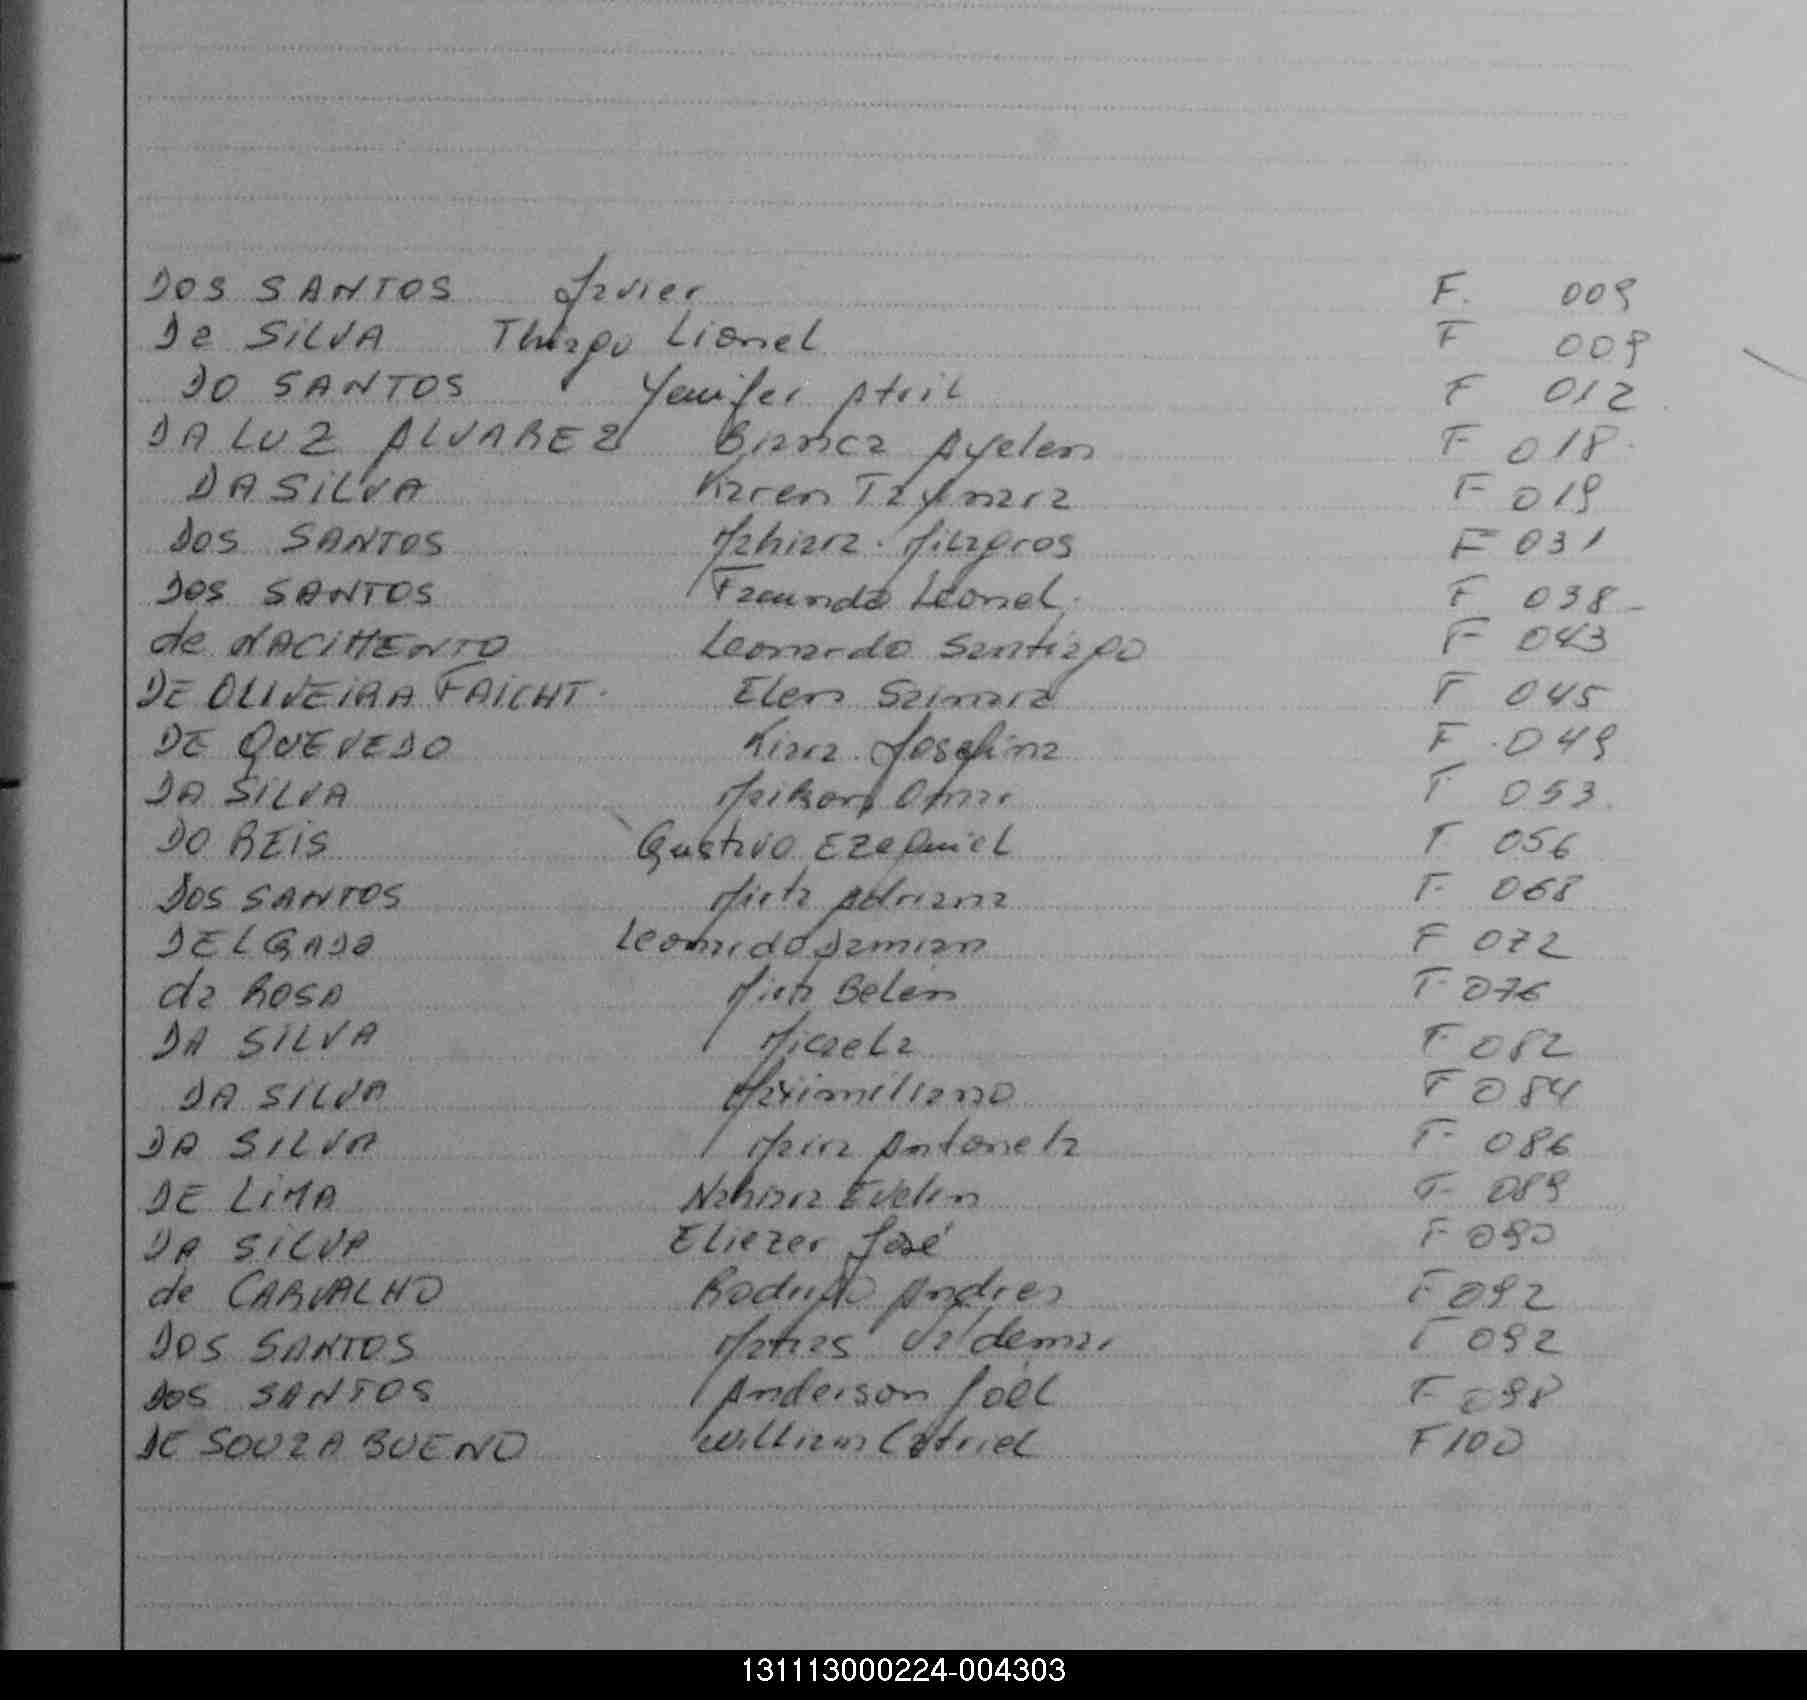 DOS SANTOS Javier F. 009
De SILVA Thiago Lionel F 009
DO SANTOS Yenifer Abril F 012
DA LUZ ALVAREZ Bianca Ayelen F 018
DA SILVA Karen Taynara F 019
DOS SANTOS Mahiara Milagros F 031
DOS SANTOS Facundo Leonel F 038
de NACIMENTO Leonardo Santiago F 043
DE OLIVEIRA FAICHT Elen Sainara F 045
DE QUEVEDO Kiara Josefina F 049
DA SILVA Maikon Omar F 053
DO REIS Gustavo Ezequiel F 056
DOS SANTOS Mirta Adriana F 068
DELGADO Leonardo Damian F 072
da ROSA Mirta Belén F 076
DA SILVA Micaela F 082
DA SILVA Maximiliano F 084
DA SILVA Maria Antonela F 086
DE LIMA Nahiara Evelin F 089
DA SILVA Eliezer José F 090
de CARVALHO Rodrigo Andres F 092
DOS SANTOS Matias Valdemar F 092
DOS SANTOS Anderson Joél F 098
DE SOUZA BUENO William Catriel F 100
131113000224-004303